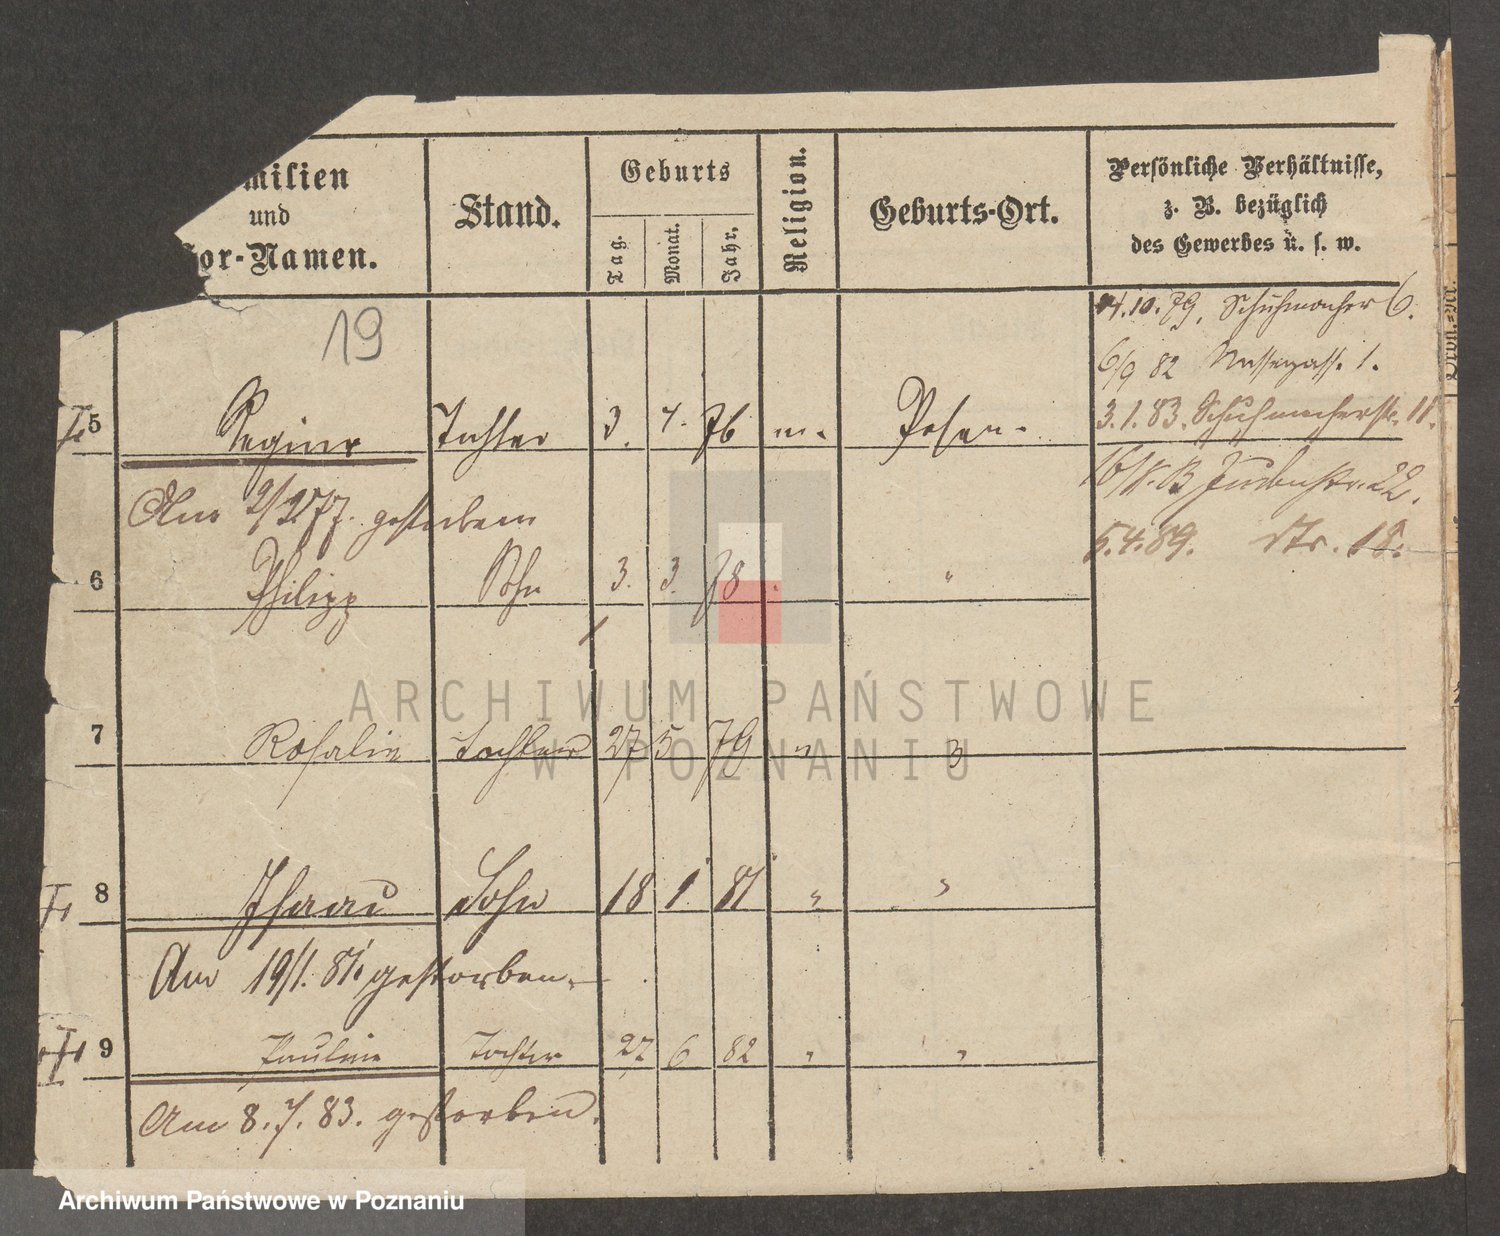 milien
und
or-Namen.
Stand.
Geburts
Tag.
Monat.
Jahr.
Religion.
Geburts-Ort.
Persönliche Verhältnisse,
z. B. bezüglich
des Gewerbes u. s. w.
19
4.10.79. Schuhmacher 6.
6/9 82 Wassergass. 1.
3.1.83. Schuhmacherstr. 11.
5 Regine Tochter 3. 4. 76 m. Posen.
Judenstr. 22.
Am gestorben
5.4.89. 18.
6 Philipp Sohn 3. 3. 78 "
ARCHIWUM PAŃSTWOWE
W POZNANIU
7 Rosalie Tochter 27 5 79 "
8 Isaac Sohn 18 1. 81 " "
Am 19/1. 81. gestorben.
9 Pauline Tochter 27. 6 82 " "
Am 8.7.83. gestorben.
Archiwum Państwowe w Poznaniu